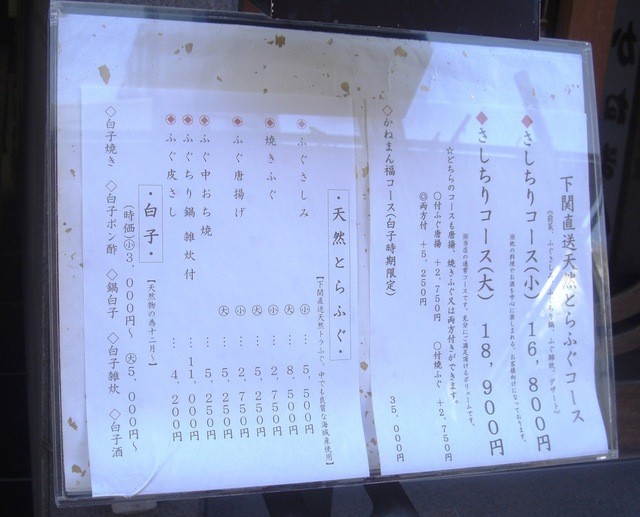 下関直送天然とらふぐコース
◆さしちりコース(小) 16,800円
◆さしちりコース(大) 18,900円
※当店の通常コースです。充分にご満足頂けるボリュームです。
☆どちらのコースも唐揚、焼きふぐ又は両方付きができます。
〇付ふぐ唐揚 +2,750円 〇付焼ふぐ +2,750円
◎両方付 +5,250円
◇かねまん福コース(白子時期限定) 35,000円
・天然とらふぐ・
【下関直送天然トラふぐ、中でも良質な海域産使用】
◆ふぐさしみ ㊙小 … 5,500円
大 … 8,500円
◆焼きふぐ 小 … 2,750円
大 … 5,250円
◆ふぐ唐揚げ 小 … 2,750円
大 … 5,250円
◆ふぐ中おち焼 … 5,250円
◆ふぐちり鍋 雑炊付 … 11,000円
◆ふぐ皮さし … 4,200円
・白子・
【天然物の為十二月~】
(時価)小3,000円~ 大5,000円~
◇白子焼き ◇白子ポン酢 ◇鍋白子 ◇白子雑炊 ◇白子酒